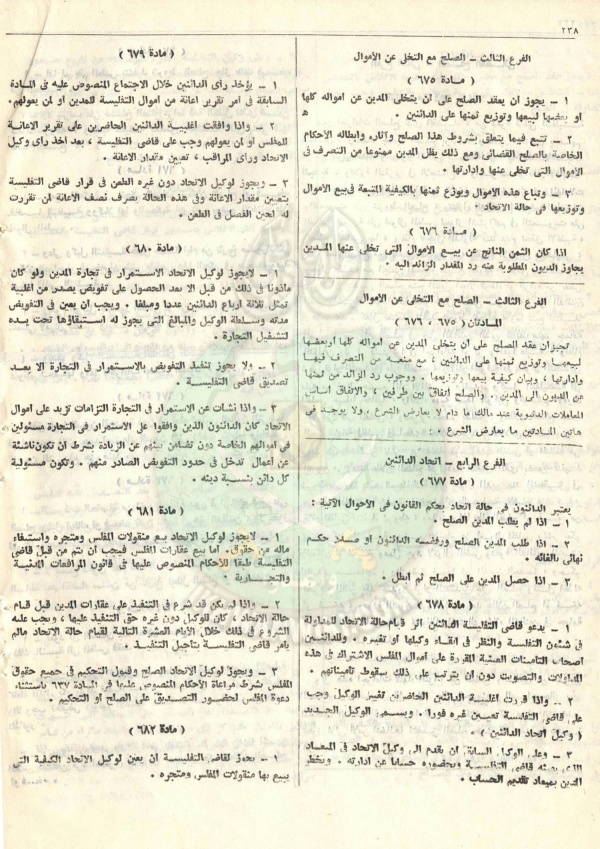 ٢٣٨
الفرع الثالث - الصلح مع التخلى عن الأموال
( مادة ٦٧٥ )
١ - يجوز ان يعقد الصلح على أن يتخلى المدين عن امواله كلها
او بعضها لبيعها وتوزيع ثمنها على الدائنين .
٢ - تتبع فيما يتعلق بشروط هذا الصلح وآثاره وابطاله الأحكام
الخاصة بالصلح القضائى ومع ذلك يظل المدين ممنوعا من التصرف فى
الأموال التى تخلى عنها وادارتها .
٣ - وتباع هذه الأموال ويوزع ثمنها بالكيفية المتبعة فى بيع الأموال
وتوزيعها فى حالة الاتحاد .
( مادة ٦٧٦ )
اذا كان الثمن الناتج عن بيع الأموال التى تخلى عنها المدين
يجاوز الديون المطلوبة منه رد المقدار الزائد اليه .
الفرع الثالث - الصلح مع التخلى عن الأموال
المادتان ( ٦٧٥ ، ٦٧٦ )
تجيزان عقد الصلح على أن يتخلى المدين عن امواله كلها أوبعضها
لبيعها وتوزيع ثمنها على الدائنين ، مع منعه من التصرف فيها
وادارتها ، وبيان كيفية بيعها وتوزيعها . ووجوب رد الزائد من ثمنها
عن الديون الى المدين . والصلح اتفاق بين طرفين ، والاتفاق أساس
المعاملات الدنيوية عند مالك ما دام لا يعارض الشرع ، ولا يوجد فى
هاتين المادتين ما يعارض الشرع .
الفرع الرابع - اتحاد الدائنين
( مادة ٦٧٧ )
يعتبر الدائنون فى حالة اتحاد بحكم القانون فى الأحوال الآتية :
١ - اذا لم يطلب المدين الصلح .
٢ - اذا طلب المدين الصلح ورفضه الدائنون أو صدر حكم
نهائى بالغائه .
٣ - اذا حصل المدين على الصلح ثم ابطل .
( مادة ٦٧٨ )
١ - يدعو قاضى التفليسة الدائنين اثر قيام حالة الاتحاد للمداولة
فى شئون التفليسة والنظر فى ابقاء وكيلها أو تغييره . وللدائنين
اصحاب التأمينات العينية المقررة على أموال المفلس الاشتراك فى هذه
المداولات والتصويت دون ان يترتب على ذلك سقوط تأميناتهم .
٢ - واذا قررت اغلبية الدائنين الحاضرين تغيير الوكيل وجب
على قاضى التفليسة تعيين غيره فورا . ويسمى الوكيل الجديد
( وكيل اتحاد الدائنين ) .
٣ - وعلى الوكيل السابق ان يقدم الى وكيل الاتحاد فى الميعاد
الذى يعينه قاضى التفليسة وبحضوره حسابا عن ادارته . ويخطر
المدين بميعاد تقديم الحساب .
( مادة ٦٧٩ )
١ - يؤخذ رأى الدائنين خلال الاجتماع المنصوص عليه فى المادة
السابقة فى امر تقرير اعانة من أموال التفليسة للمدين او لمن يعولهم .
٢ - واذا وافقت اغلبية الدائنين الحاضرين على تقرير الاعانة
للمفلس أو لمن يعولهم وجب على قاضى التفليسة ، بعد اخذ رأى وكيل
الاتحاد ورأى المراقب ، تعيين مقدار الاعانة .
٣ - ويجوز لوكيل الاتحاد دون غيره الطعن فى قرار قاضى التفليسة
بتعيين مقدار الاعانة وفى هذه الحالة يصرف نصف الاعانة لمن تقررت
له لحين الفصل فى الطعن .
( مادة ٦٨٠ )
١ - لايجوز لوكيل الاتحاد الاستمرار فى تجارة المدين ولو كان
مأذونا فى ذلك من قبل الا بعد الحصول على تفويض يصدر من أغلبية
تمثل ثلاثة أرباع الدائنين عددا ومبلغا . ويجب ان يعين فى التفويض
مدته وسلطة الوكيل والمبالغ التى يجوز له استبقاؤها تحت يده
لتشغيل التجارة .
٢ - ولا يجوز تنفيذ التفويض بالاستمرار فى التجارة الا بعد
تصديق قاضى التفليسة .
٣ - واذا نشأت عن الاستمرار فى التجارة التزامات تزيد على أموال
الاتحاد كان الدائنون الذين وافقوا على الاستمرار فى التجارة مسئولين
فى أموالهم الخاصة دون تضامن بينهم عن الزيادة بشرط ان تكون ناشئة
عن أعمال تدخل فى حدود التفويض الصادر منهم . وتكون مسئولية
كل دائن بنسبة دينه .
( مادة ٦٨١ )
١ - لايجوز لوكيل الاتحاد بيع منقولات المفلس ومتجره واستيفاء
ماله من حقوق . أما بيع عقارات المفلس فيجب ان يتم من قبل قاضى
التفليسة طبقا للأحكام المنصوص عليها فى قانون المرافعات المدنية
والتجارية .
٢ - واذا لم يكن قد شرع فى التنفيذ على عقارات المدين قبل قيام
الاتحاد ، كان للوكيل دون غيره حق التنفيذ عليها ، ويجب عليه
الشروع فى ذلك خلال الأيام العشرة التالية لقيام حالة الاتحاد مالم
يأمر قاضى التفليسة بتأجيل التنفيذ .
٣ - ويجوز لوكيل الاتحاد الصلح وقبول التحكيم فى جميع حقوق
المفلس بشرط مراعاة الأحكام المنصوص عليها فى المادة ٦٣٧ باستثناء
دعوة المفلس لحضور التصديق على الصلح أو التحكيم .
( مادة ٦٨٢ )
١ - يجوز لقاضى التفليسة ان يعين لوكيل الاتحاد الكيفية التى
يبيع بها منقولات المفلس ومتجره .